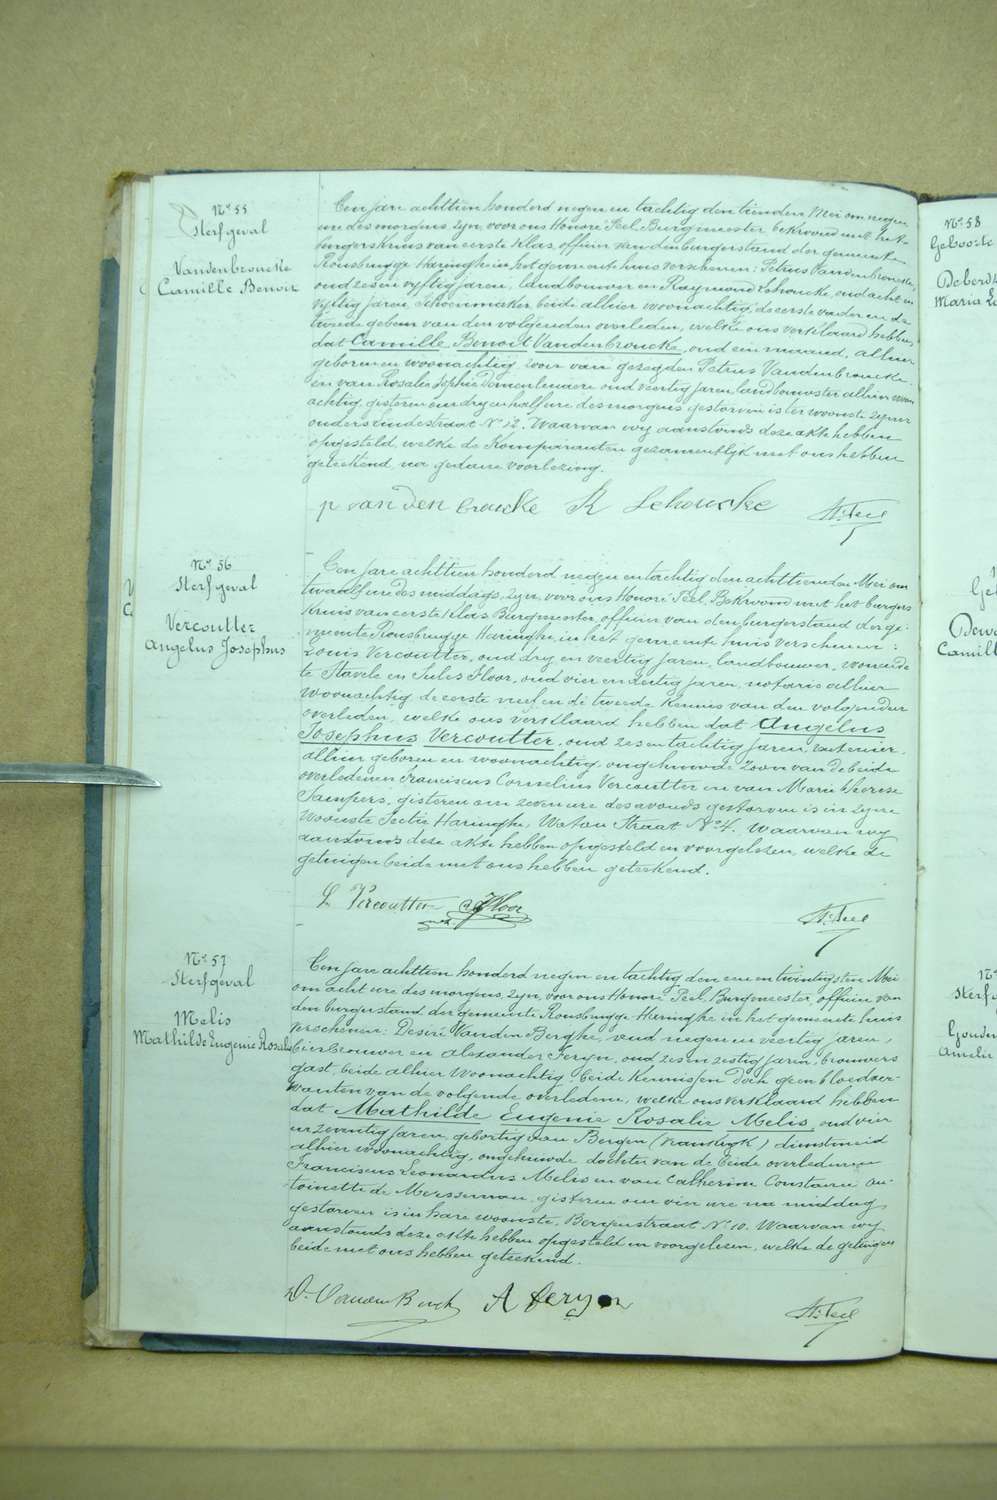 Nr 55
Sterfgeval
Vandenbroucke
Camille Benoit
Een jare achttien honderd negen en tachtig den tienden Mei om negen
ure des morgens, zyn, voor ons Honoré Feel, Burgmeester bekroond met het
burgerskruis van eerste klas, officier van den burgerstand der gemeente
Rousbrugge Haringhe in het gemeente huis verschenen: Petrus Vandenbroucke,
oud zes en vyftig jaren, landbouwer en Raymond Lehoucke, oud acht en
vyftig jaren, schoenmaker beide alhier woonachtig, de eerste vader en de
tweede gebuur van den volgenden overleden, welke ons verklaard hebben
dat Camille Benoit Vandenbroucke, oud een maand, alhier
geboren en woonachtig, zoon van gezegden Petrus Vandenbroucke
en van Rosalie Sophie oud veertig jaren, landbouwster alhier woon
achtig, gisteren om dry en half ure des morgens gestorven is ter woonste zyner
ouders Lindestraat Nr 12. Waarvan wy aanstonds deze akte hebben
opgesteld, welke de Komparanten gezamentlyk met ons hebben
geteekend, na gedane voorlezing.
p van den broucke R Lehoucke H. Feel
Nr 56
Sterfgeval
Vercoutter
Angelus Josephus
Een jare achttien honderd negen en tachtig den achttienden Mei om
twaalf ure des middags, zyn, voor ons Honoré Feel, Bekroond met het burgers
Kruis van eerste klas, Burgmeester, officier van den burgerstand der ge-
meente Rousbrugge Haringhe, in het gemeente huis verschenen:
Louis Vercoutter, oud dry en veertig jaren, landbouwer, wonende
te Stavele en Jules Floor, oud vier en dertig jaren, notaris alhier
woonachtig, de eerste neef en de tweede kennis van den volgenden
overleden, welke ons verklaard hebben dat Angelus
Josephus Vercoutter, oud zes en tachtig jaren, rentenier,
alhier geboren en woonachtig, ongehuwde zoon van de beide
overledenen Franciscus Cornelius Vercoutter en van Marie Therese
Sampers, gisteren om zeven ure des avonds gestorven is in zyne
woonste Sectie Haringhe, Watou Straat No 4. Waarvan wy
aanstonds deze akte hebben opgesteld en voorgelezen, welke de
getuigen beide met ons hebben geteekend.
L Vercoutter Floor H. Feel
Nr 57
Sterfgeval
Melis
Mathilde Eugenie Rosalie
Een jare achttien honderd negen en tachtig, den een en twintigsten Mei
om acht ure des morgens, zyn, voor ons Honoré Feel, Burgmeester, officier van
den burgerstand der gemeente Rousbrugge-Haringhe in het gemeente huis
verschenen: Desiré Vanden Berghe, oud negen en veertig jaren,
bierbrouwer en Alexander Feryn, oud zes en zestig jaren, brouwers
gast, beide alhier woonachtig, beide Kennissen doch geen bloedver-
wanten van de volgende overledene, welke ons verklaard hebben
dat Mathilde Eugenie Rosalie Melis, oud vier
en zeventig jaren, geboortig van Bergen (Frankryk) dienstmeid
alhier woonachtig, ongehuwde dochter van de beide overledenen
Franciscus Leonardus Melis en van Catherine Constance An-
toinette de Mersseman, gisteren om vier ure na middag
gestorven is in hare woonste, Bergenstraat Nr 10. Waarvan wy
aanstonds deze akte hebben opgesteld en voorgelezen, welke de getuigen
beide met ons hebben geteekend.
D. Vanden Bergh A feryn H. Feel
Nr 58
Geboorte
Maria
Camill
Sterf
Amelie